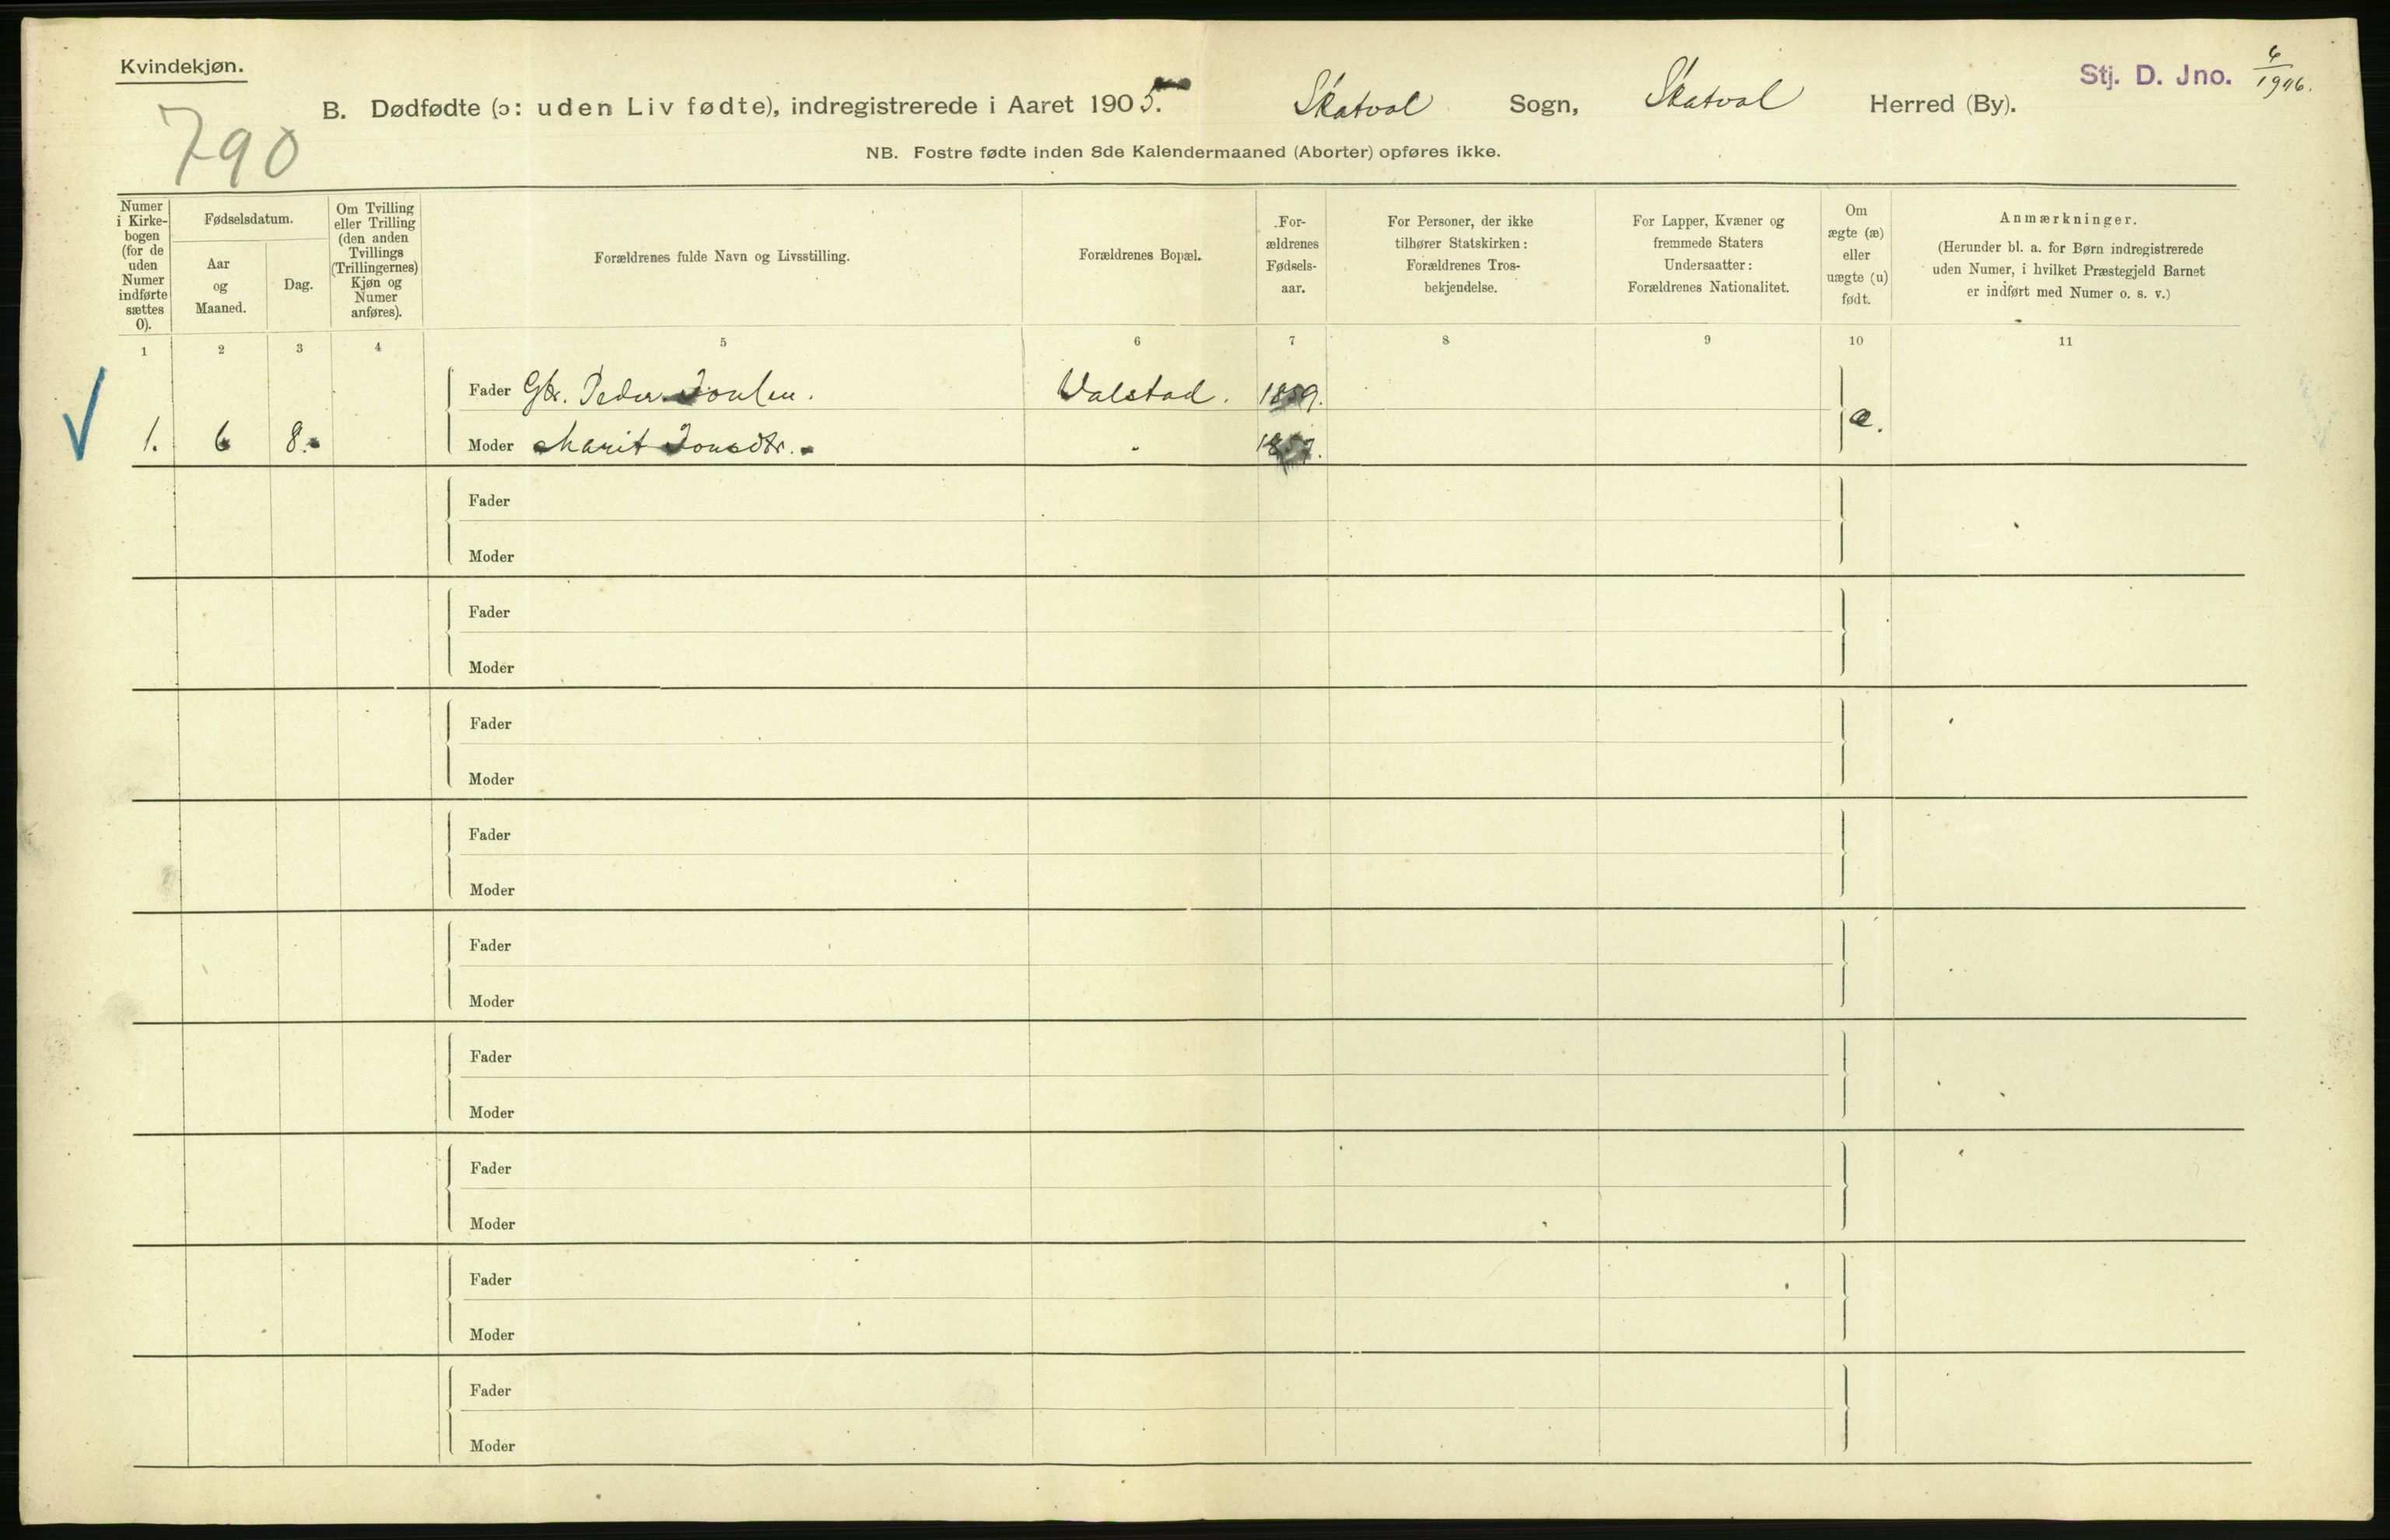 Kvindekjøn.
Stj. D. Jno. 6/1906.
790
B. Dødfødte (ɔ: uden Liv fødte), indregistrerede i Aaret 1905. Skatval Sogn, Skatval Herred (By).
NB. Fostre fødte inden 8de Kalendermaaned (Aborter) opføres ikke.
Numer
i Kirke-
bogen
(for de
uden
Numer
indførte
sættes
0).
Fødselsdatum.
Aar
og
Maaned.
Dag.
Om Tvilling
eller Trilling
(den anden
Tvillings
(Trillingernes)
Kjøn og
Numer
anføres).
Forældrenes fulde Navn og Livsstilling.
Forældrenes Bopæl.
For-
ældrenes
Fødsels-
aar.
For Personer, der ikke
tilhører Statskirken:
Forældrenes Tros-
bekjendelse.
For Lapper, Kvæner og
fremmede Staters
Undersaatter:
Forældrenes Nationalitet.
Om
ægte (æ)
eller
uægte (u)
født.
Anmærkninger.
(Herunder bl. a. for Børn indregistrerede
uden Numer, i hvilket Præstegjeld Barnet
er indført med Numer o. s. v.)
1 2 3 4 5 6 7 8 9 10 11
Fader Gbr. Peder Jonsen. Valstad. 1859.
1. 6 8. Moder Marit Jonsdtr. " æ.
Fader
Moder
Fader
Moder
Fader
Moder
Fader
Moder
Fader
Moder
Fader
Moder
Fader
Moder
Fader
Moder
Fader
Moder